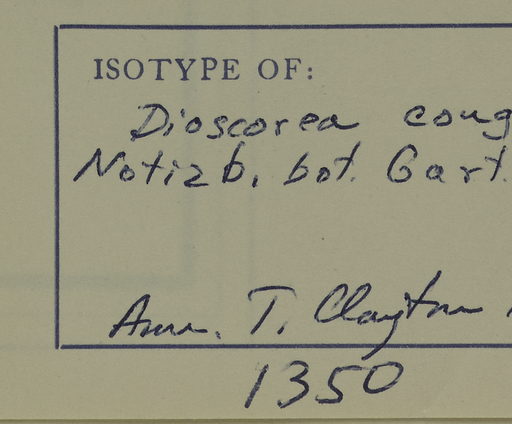 ISOTYPE OF:
Dioscorea coug
Notizb. bot. Gart.
Ann. T. Clayton
1350